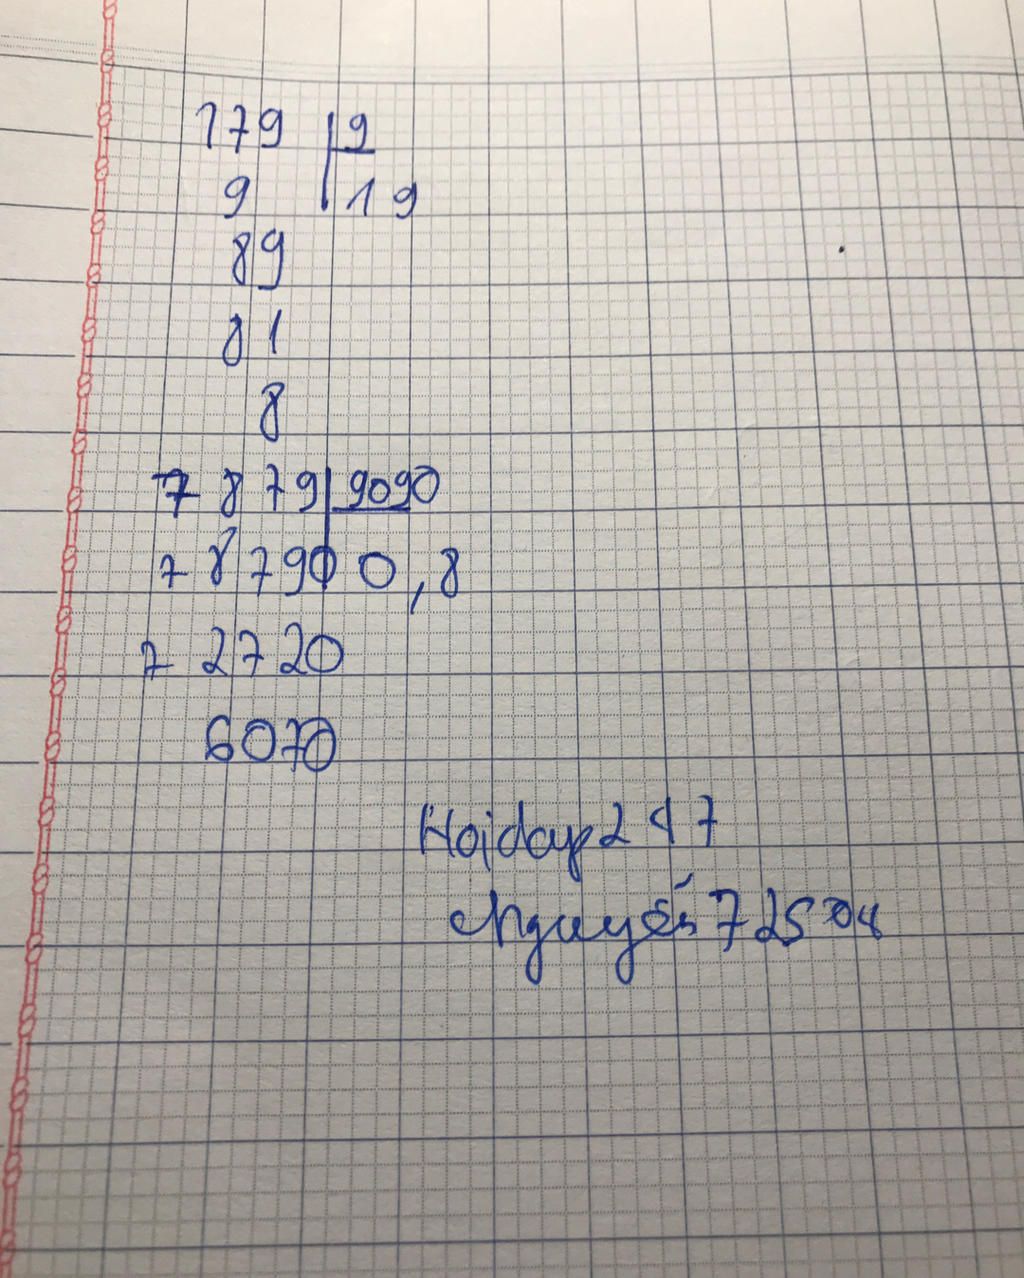 179 9
9 19
89
81
8
7879 9090
78790 0,8
72720
6070
Hoidap247
Nguyến72504